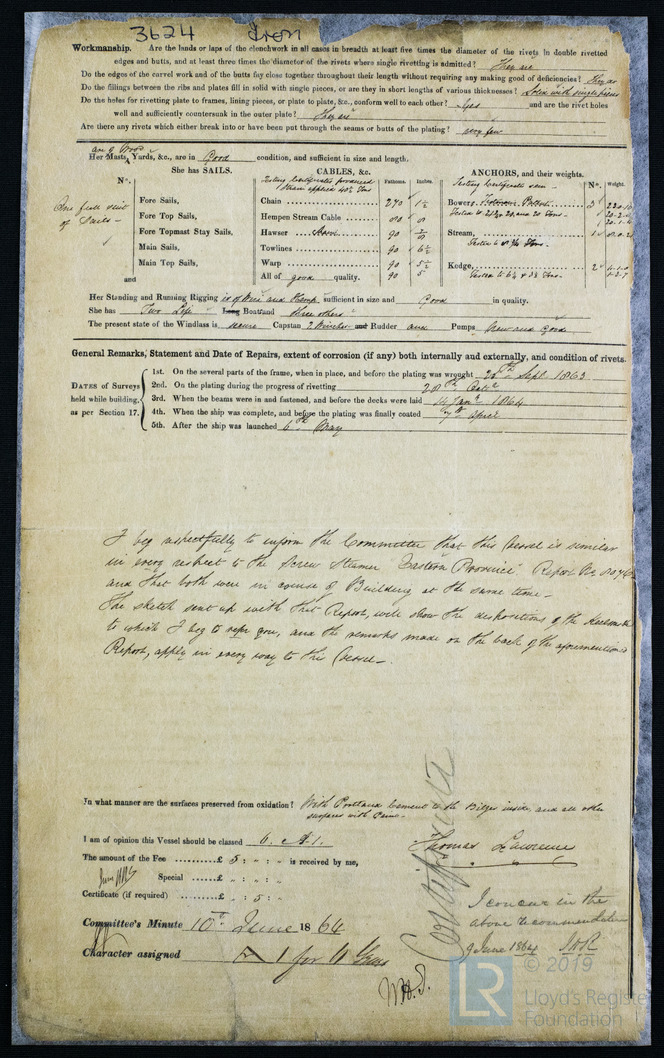 3624 Iron
Workmanship. Are the lands or laps of the clenchwork in all cases in breadth at least five times the diameter of the rivets in double rivetted
edges and butts, and at least three times the diameter of the rivets where single rivetting is admitted? They are
Do the edges of the carvel work and of the butts lay close together throughout their length without requiring any making good of deficiencies? They are
Do the fillings between the ribs and plates fill in solid with single pieces, or are they in short lengths of various thicknesses? Solid with single pieces
Do the holes for rivetting plate to frames, lining pieces, or plate to plate, &c., conform well to each other? Yes and are the rivet holes
well and sufficiently countersunk in the outer plate? They are
Are there any rivets which either break into or have been put through the seams or butts of the plating? very few
Her Masts, Yards, &c., are in Good condition, and sufficient in size and length.
She has SAILS. CABLES, &c. ANCHORS, and their weights.
N°. Fathoms. Inches. N°. Weight.
One full suit of Sails
Fore Sails, Chain 270 Bowers, 3
Fore Top Sails, Hempen Stream Cable
Fore Topmast Stay Sails, Hawser 90 Stream, 1
Main Sails, Towlines 90 6½
Main Top Sails, Warp 90 5½ Kedge, 2
and All of good quality. 90 5
Her Standing and Running Rigging is of Wire and Hemp sufficient in size and Good in quality.
She has Two Life Long Boat and three others
The present state of the Windlass is secure Capstan 2 Winches and Rudder and Pumps New and Good
General Remarks, Statement and Date of Repairs, extent of corrosion (if any) both internally and externally, and condition of rivets.
DATES of Surveys held while building, as per Section 17.
1st. On the several parts of the frame, when in place, and before the plating was wrought Sept. 1863
2nd. On the plating during the progress of rivetting 28th Octr
3rd. When the beams were in and fastened, and before the decks were laid Jany 1864
4th. When the ship was complete, and before the plating was finally coated 7th April
5th. After the ship was launched 6th May
I beg respectfully to inform the Committee that this Vessel is similar
in every respect to the Screw Steamer "Eastern Province" Report No.
and that both were in course of Building at the same time.
The sketch sent up with that Report, will show the dispositions of the
to which I beg to refer you, and the remarks made on the back of the aforementioned
Report, apply in every way to this Vessel.
In what manner are the surfaces preserved from oxidation? With Portland Cement to the Bilges inside, and all other
surfaces with Paint
I am of opinion this Vessel should be classed 6. A1. Thomas Lawrence
The amount of the Fee £ 5 : „ : „ is received by me,
Special £ „ : „ : „
Certificate (if required) £ „ : 5 : „
I concur in the
above recommendation
9 June 1864
Committee's Minute 10th June 1864
Character assigned A 1 for
W.H.S.
LR
© 2019
Lloyd's Register
Foundation